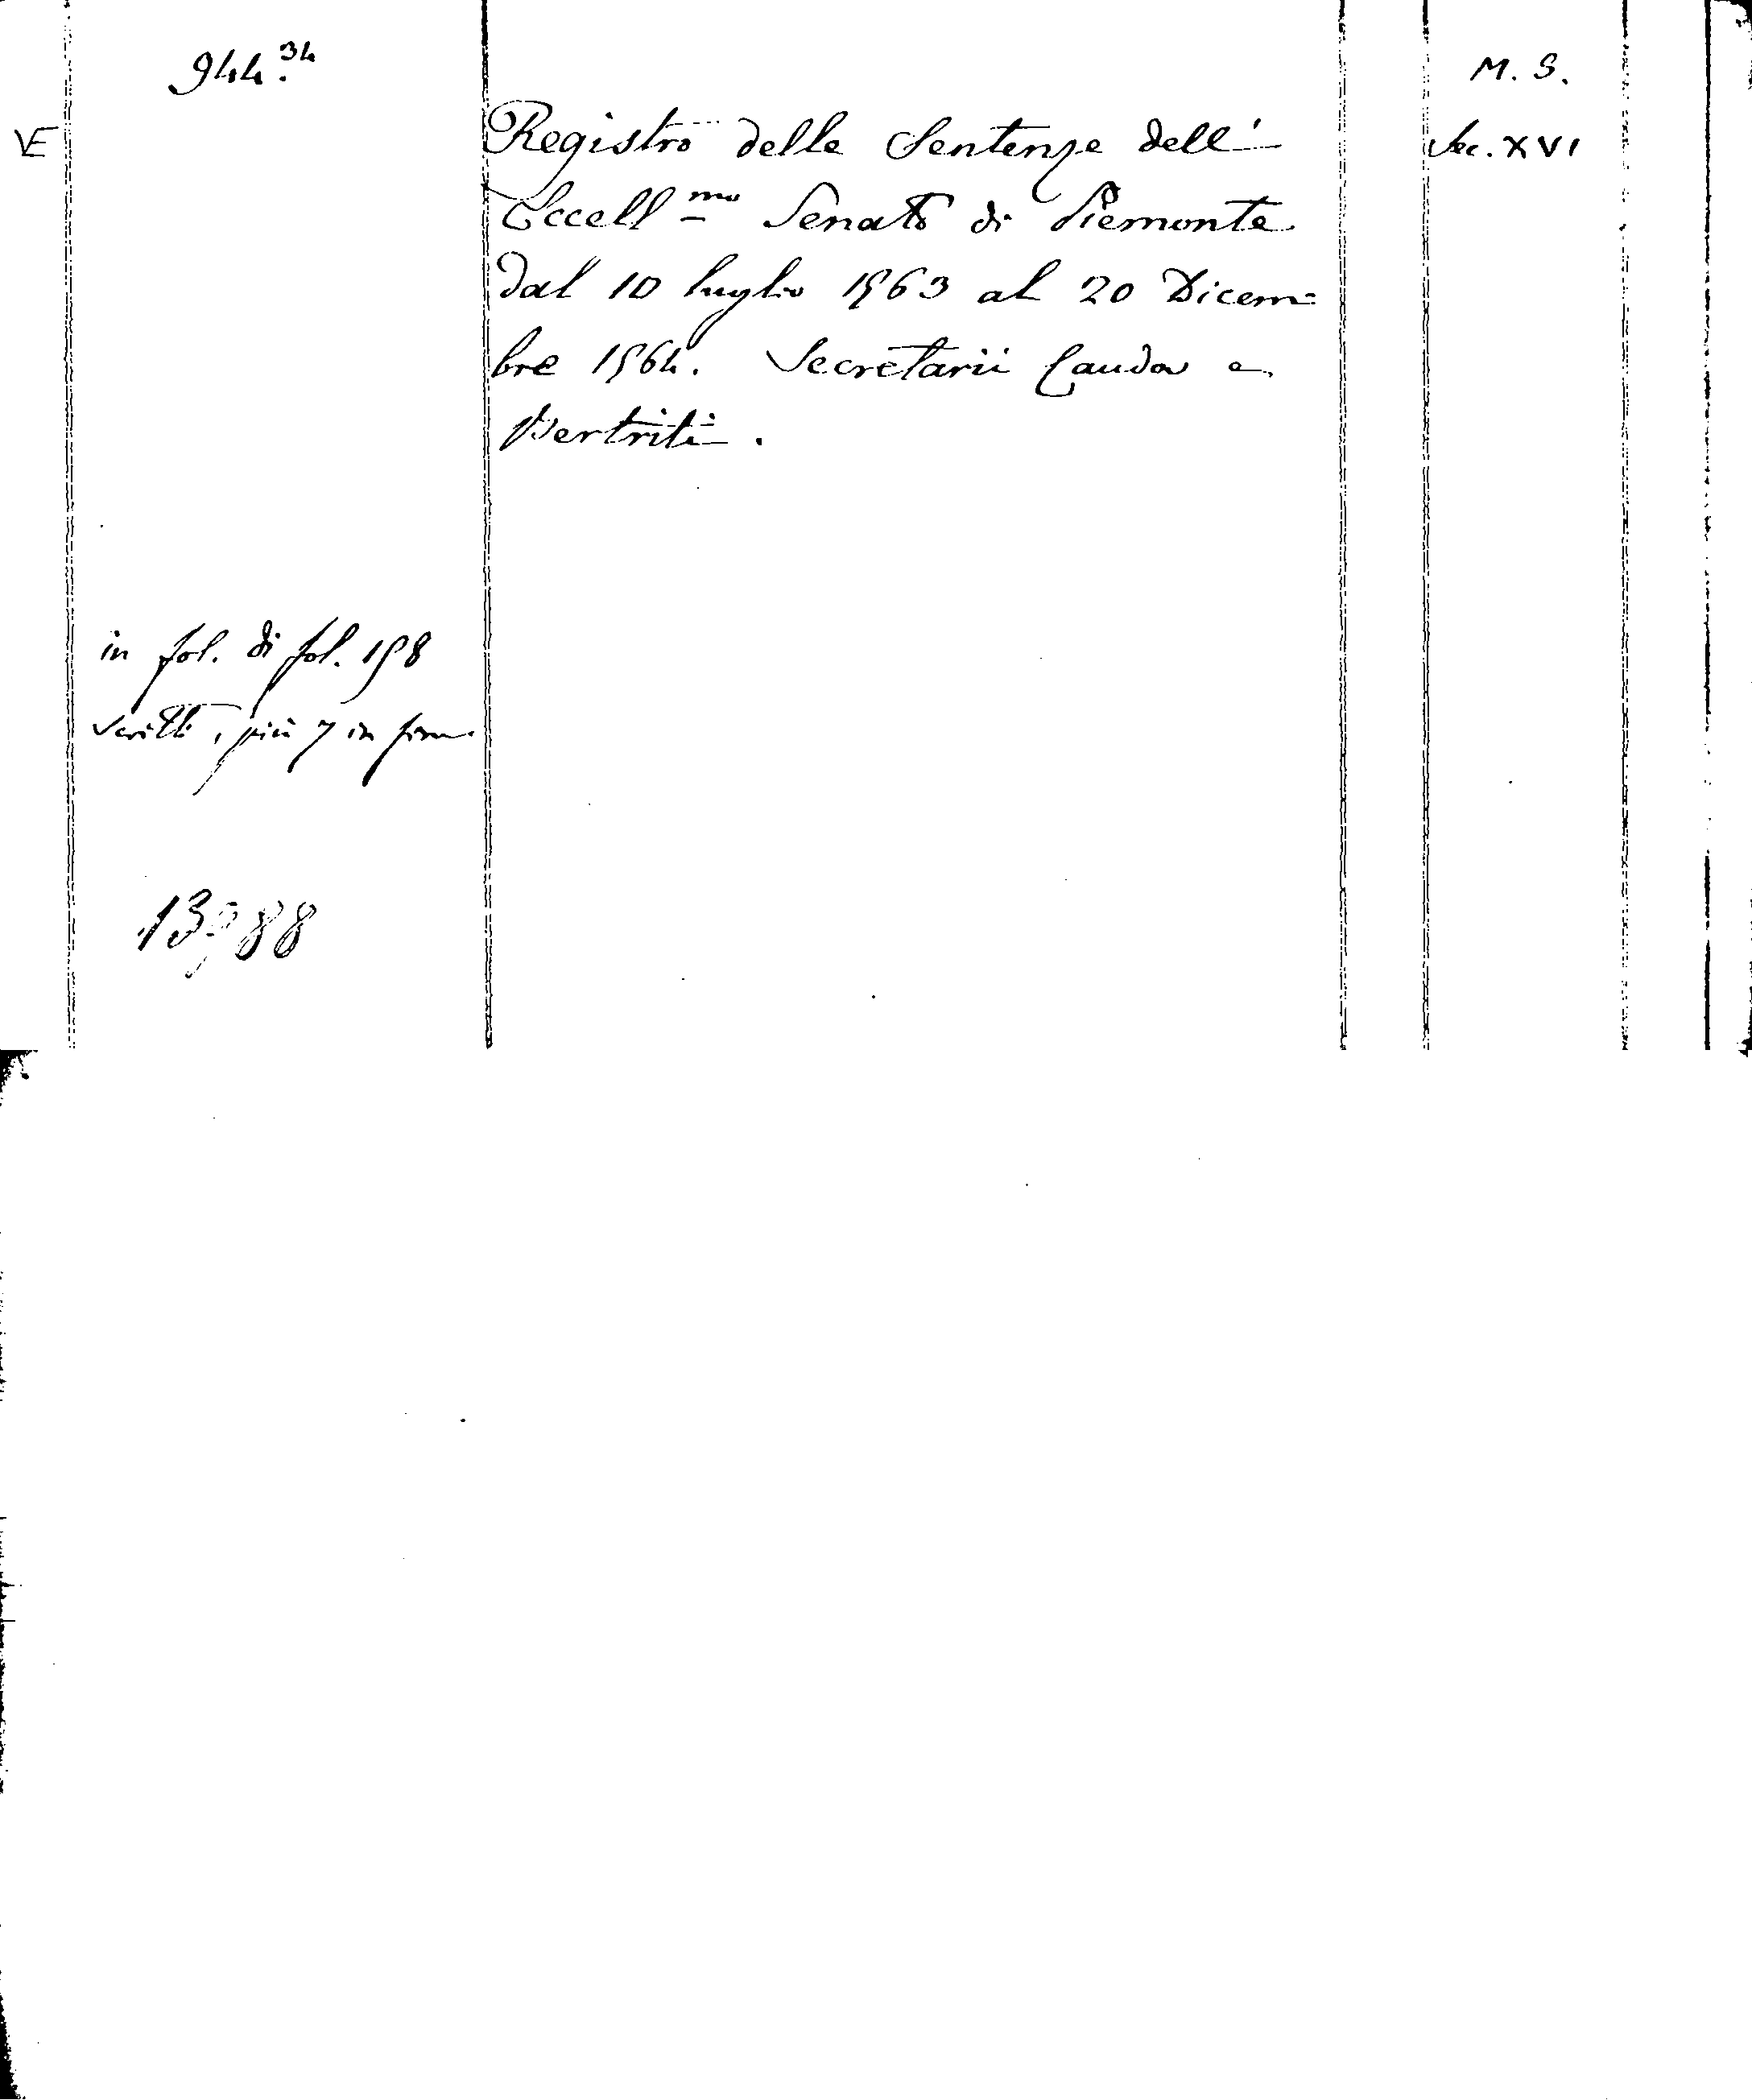 944.34
M. S.
VE
Registro delle Sentenze dell'
Sec. XVI
Eccell.mo Senato di Piemonte
dal 10 luglio 1563 al 20 Dicem=
bre 1564. Secretarii Cauda e
Bertriti.
in fol. di fol. 158
scritti, più 7 in fine
13988